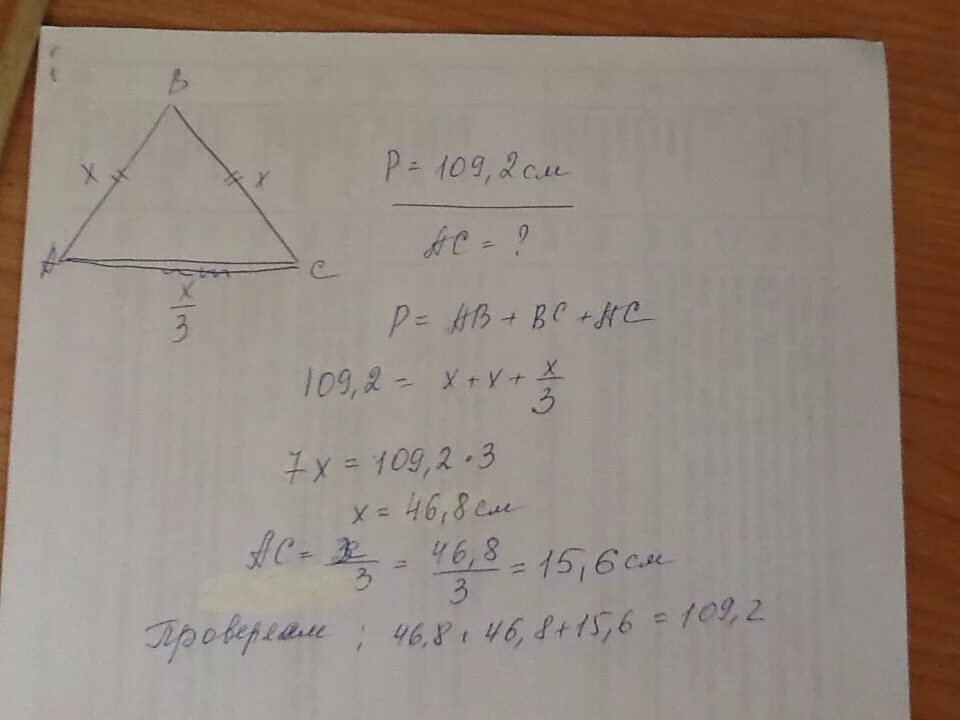 B
x x
A C
x/3
P = 109,2 см
AC = ?
P = AB + BC + AC
109,2 = x + x + x/3
7x = 109,2 · 3
x = 46,8 см
AC = x/3 = 46,8/3 = 15,6 см
Проверяем ; 46,8 + 46,8 + 15,6 = 109,2